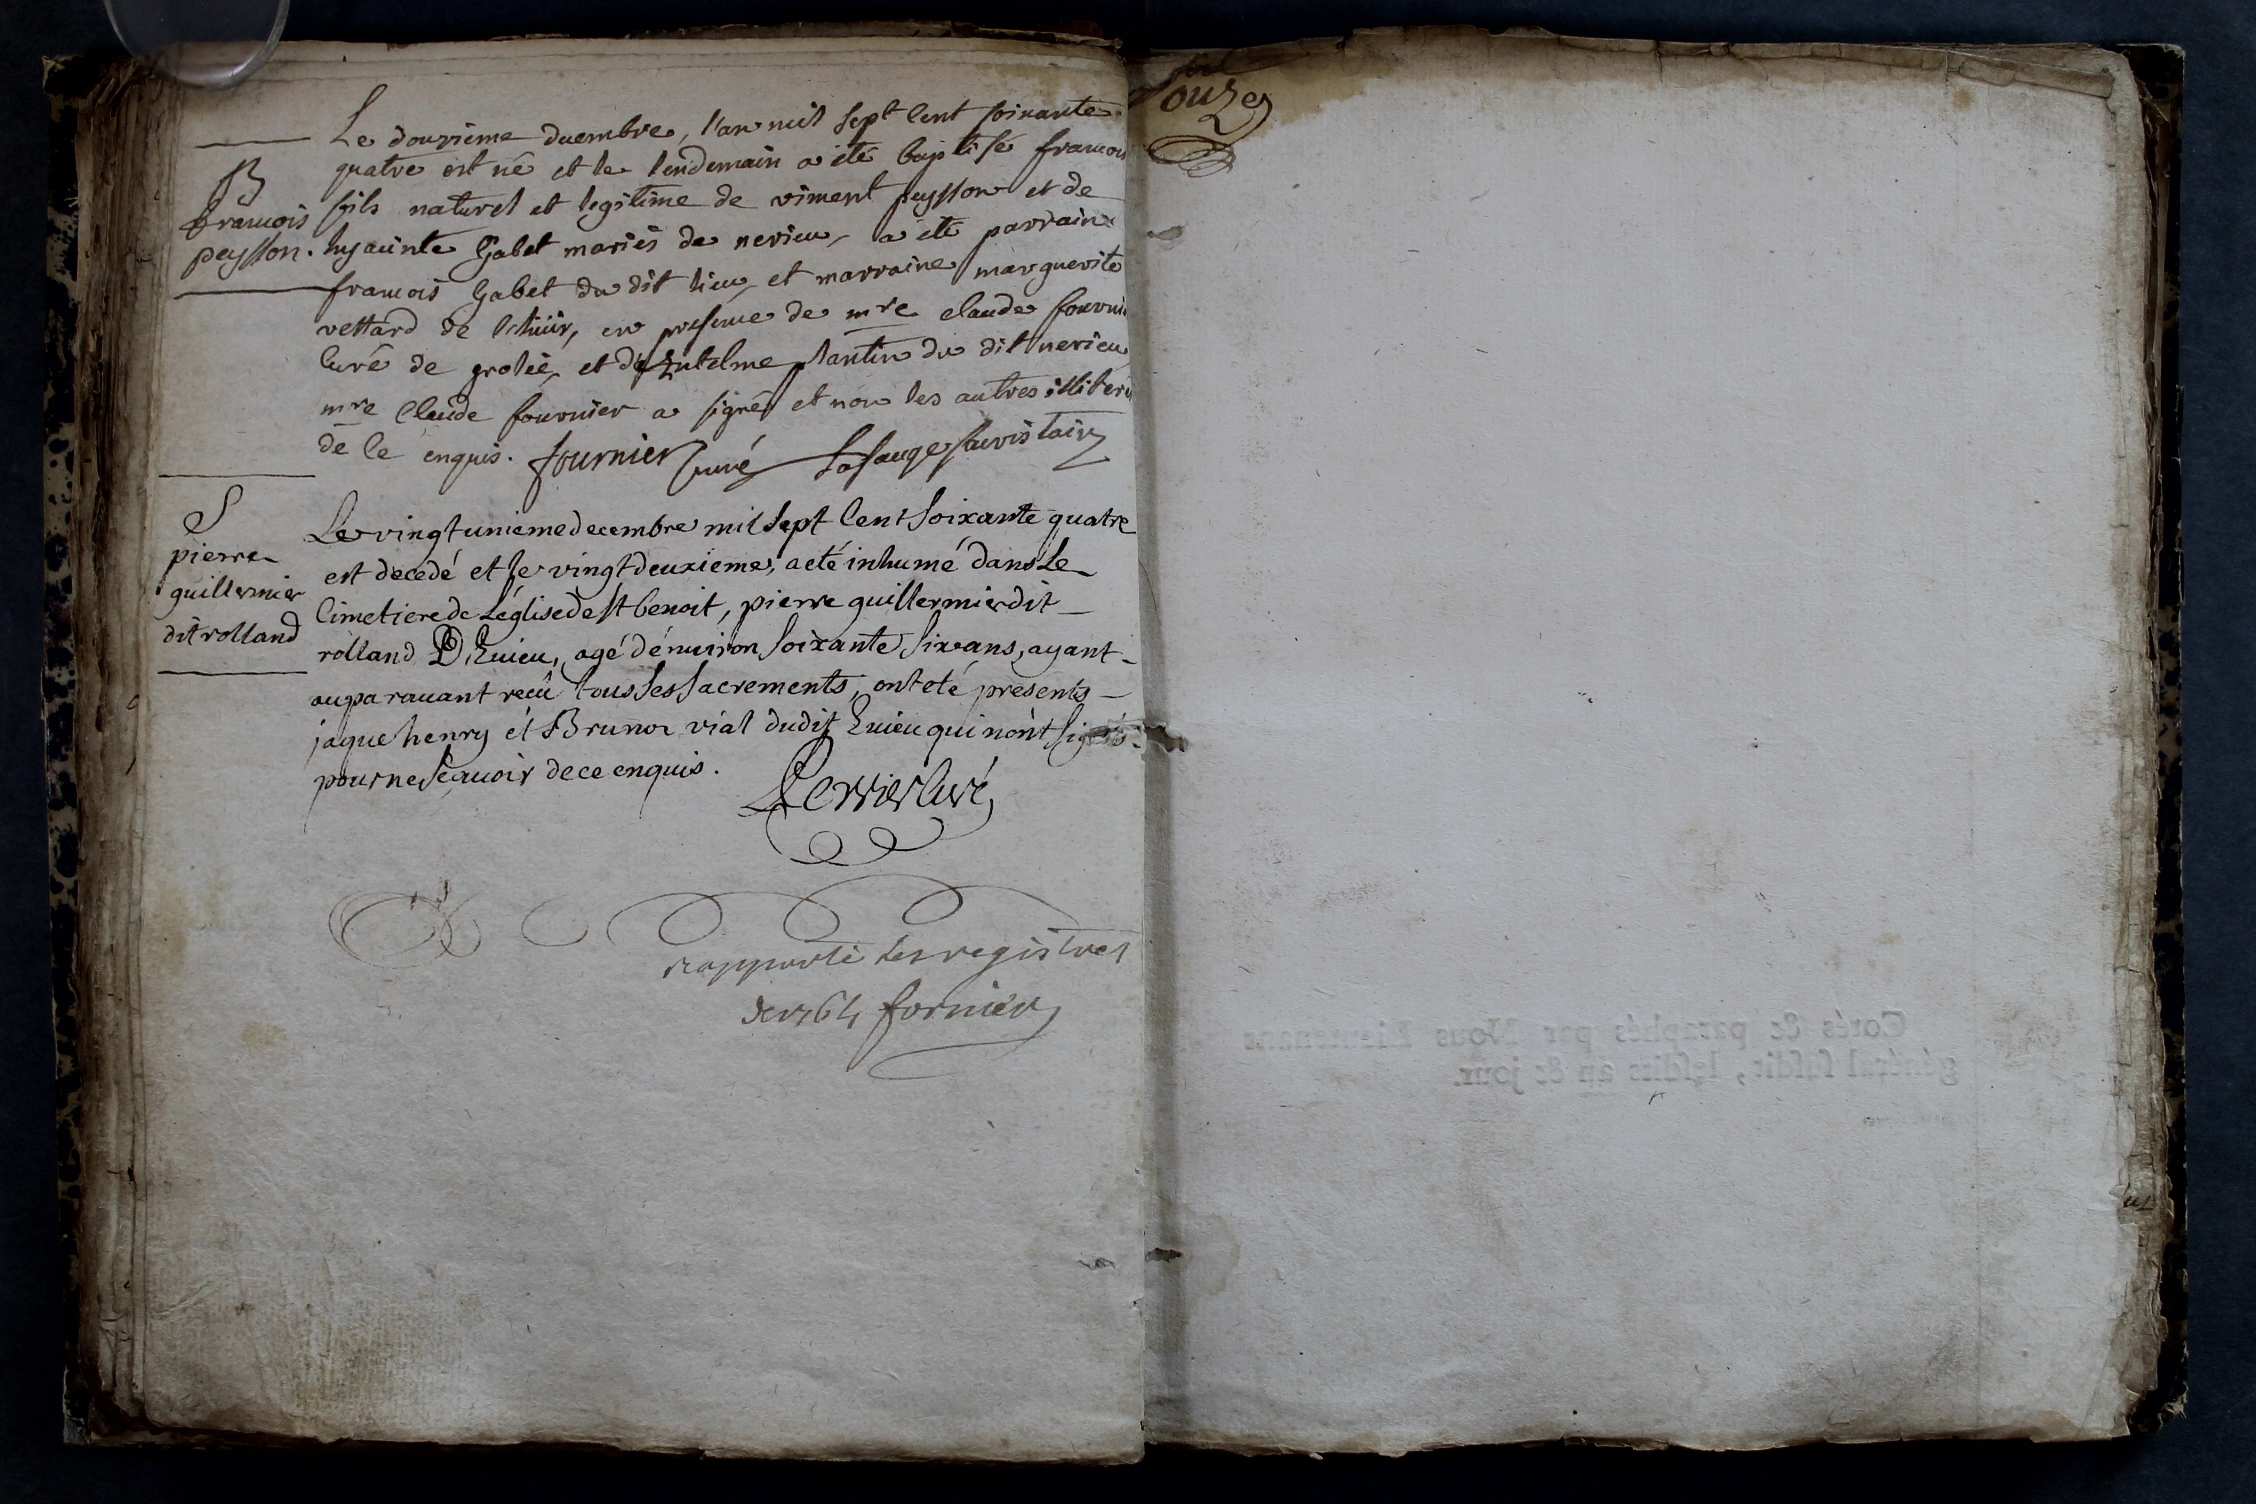 B
francois
peysson.
Le douzieme decembre, l'an mil sept Cent soixante
quatre est né et le lendemain a été baptisé francois
fils naturel et legitime de vincent peysson et de
hyacinte Gabet mariés de nerieu, a été parrain
francois Gabet du dit lieu, et marraine marguerite
vettard de en presence de mre claude fournier
Curé de grolée, et d'Antelme plantin du dit nerieu
mre Claude fournier a signé et non les autres illiteré
de Ce enquis. fournier curé
S
pierre
guillermier
dit rolland
Le vingt unieme decembre mil sept Cent soixante quatre
est decedé et le vingt deuxieme, a eté inhumé dans le
Cimetiere de L'eglise de st benoit, pierre guillermier dit
rolland D'Evieu, agé d'environ soixante six ans, ayant
auparavant recû tous les sacrements, ont eté presents
jaque henry et Bruno vial dudit Evieu qui n'ont signés
pour ne scavoir de ce enquis.
Perrier Curé
rapporté les registres
de 1764 fornier
ouze
Cotés & paraphés par Nous Lieutenant
général susdit, lesdits an & jour.